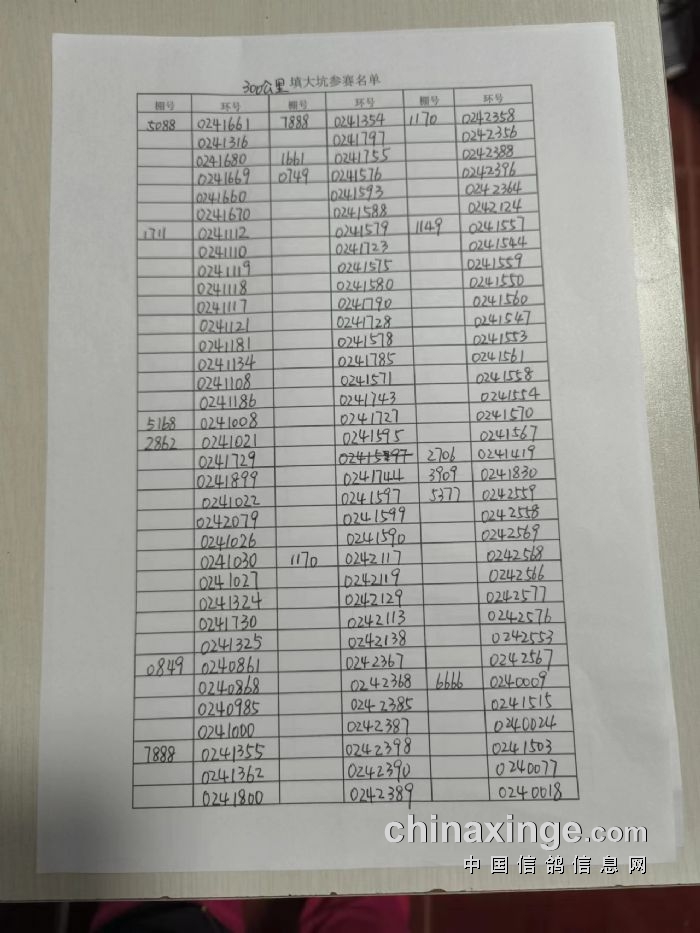 300公里填大坑参赛名单
棚号 环号 棚号 环号 棚号 环号
5088 0241661 7888 0241354 1170 0242358
0241316 0241797 0242356
0241680 1661 0241755 0242388
0241669 0749 0241576 0242396
0241660 0241593 0242364
0241670 0241588 0242124
1711 0241112 0241579 1149 0241557
0241110 0241723 0241544
0241119 0241575 0241559
0241118 0241580 0241550
0241117 0241790 0241560
0241121 0241728 0241547
0241181 0241578 0241553
0241134 0241785 0241561
0241108 0241571 0241558
0241186 0241743 0241554
5168 0241008 0241727 0241570
2862 0241021 0241595 0241567
0241729 2706 0241419
0241899 0241744 3909 0241830
0241022 0241597 5377 0242559
0242079 0241599 0242558
0241026 0241590 0242569
0241030 1170 0242117 0242568
0241027 0242119 0242566
0241324 0242129 0242577
0241730 0242113 0242576
0241325 0242138 0242553
0849 0240861 0242367 0242567
0240868 0242368 6666 0240009
0240985 0242385 0241515
0241000 0242387 0240024
7888 0241355 0242398 0241503
0241362 0242390 0240077
0241800 0242389 0240018
chinaxinge.com
中国信鸽信息网